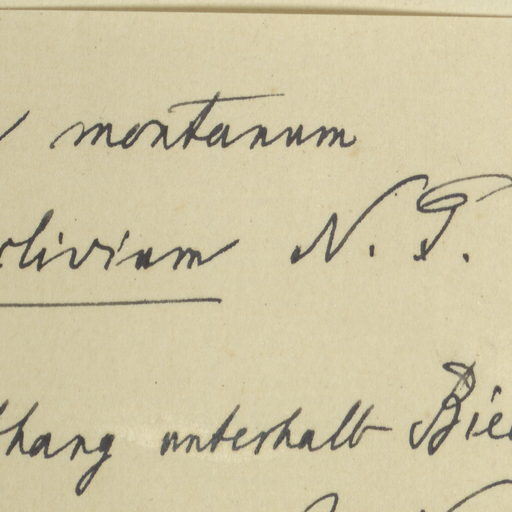 montanum
clivium N. P.
hang unterhalb Bie